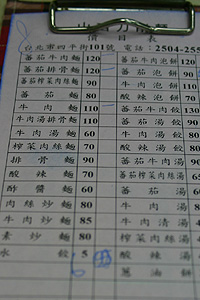 價目表
台北市四平街101號 電話：2504-255
蕃茄牛肉麵 120 蕃茄牛肉泡餅
蕃茄排骨麵 120 蕃茄泡餅
蕃茄榨菜肉絲麵 90 牛肉泡餅
蕃茄麵 80 酸辣泡餅
牛肉麵 110 蕃茄牛肉餃
牛肉湯排骨麵 110 蕃茄湯餃
牛肉湯麵 80 牛肉湯餃
榨菜肉絲麵 70 酸辣湯餃
排骨麵 90 蕃茄牛肉湯
酸辣麵 70 蕃茄榨菜肉絲湯
酢醬麵 60 蕃茄湯
肉絲炒麵 80 牛肉湯
牛肉炒麵 85 牛肉清湯
素炒麵 80 榨菜肉絲湯
水餃 5 酸辣湯
蔥油餅